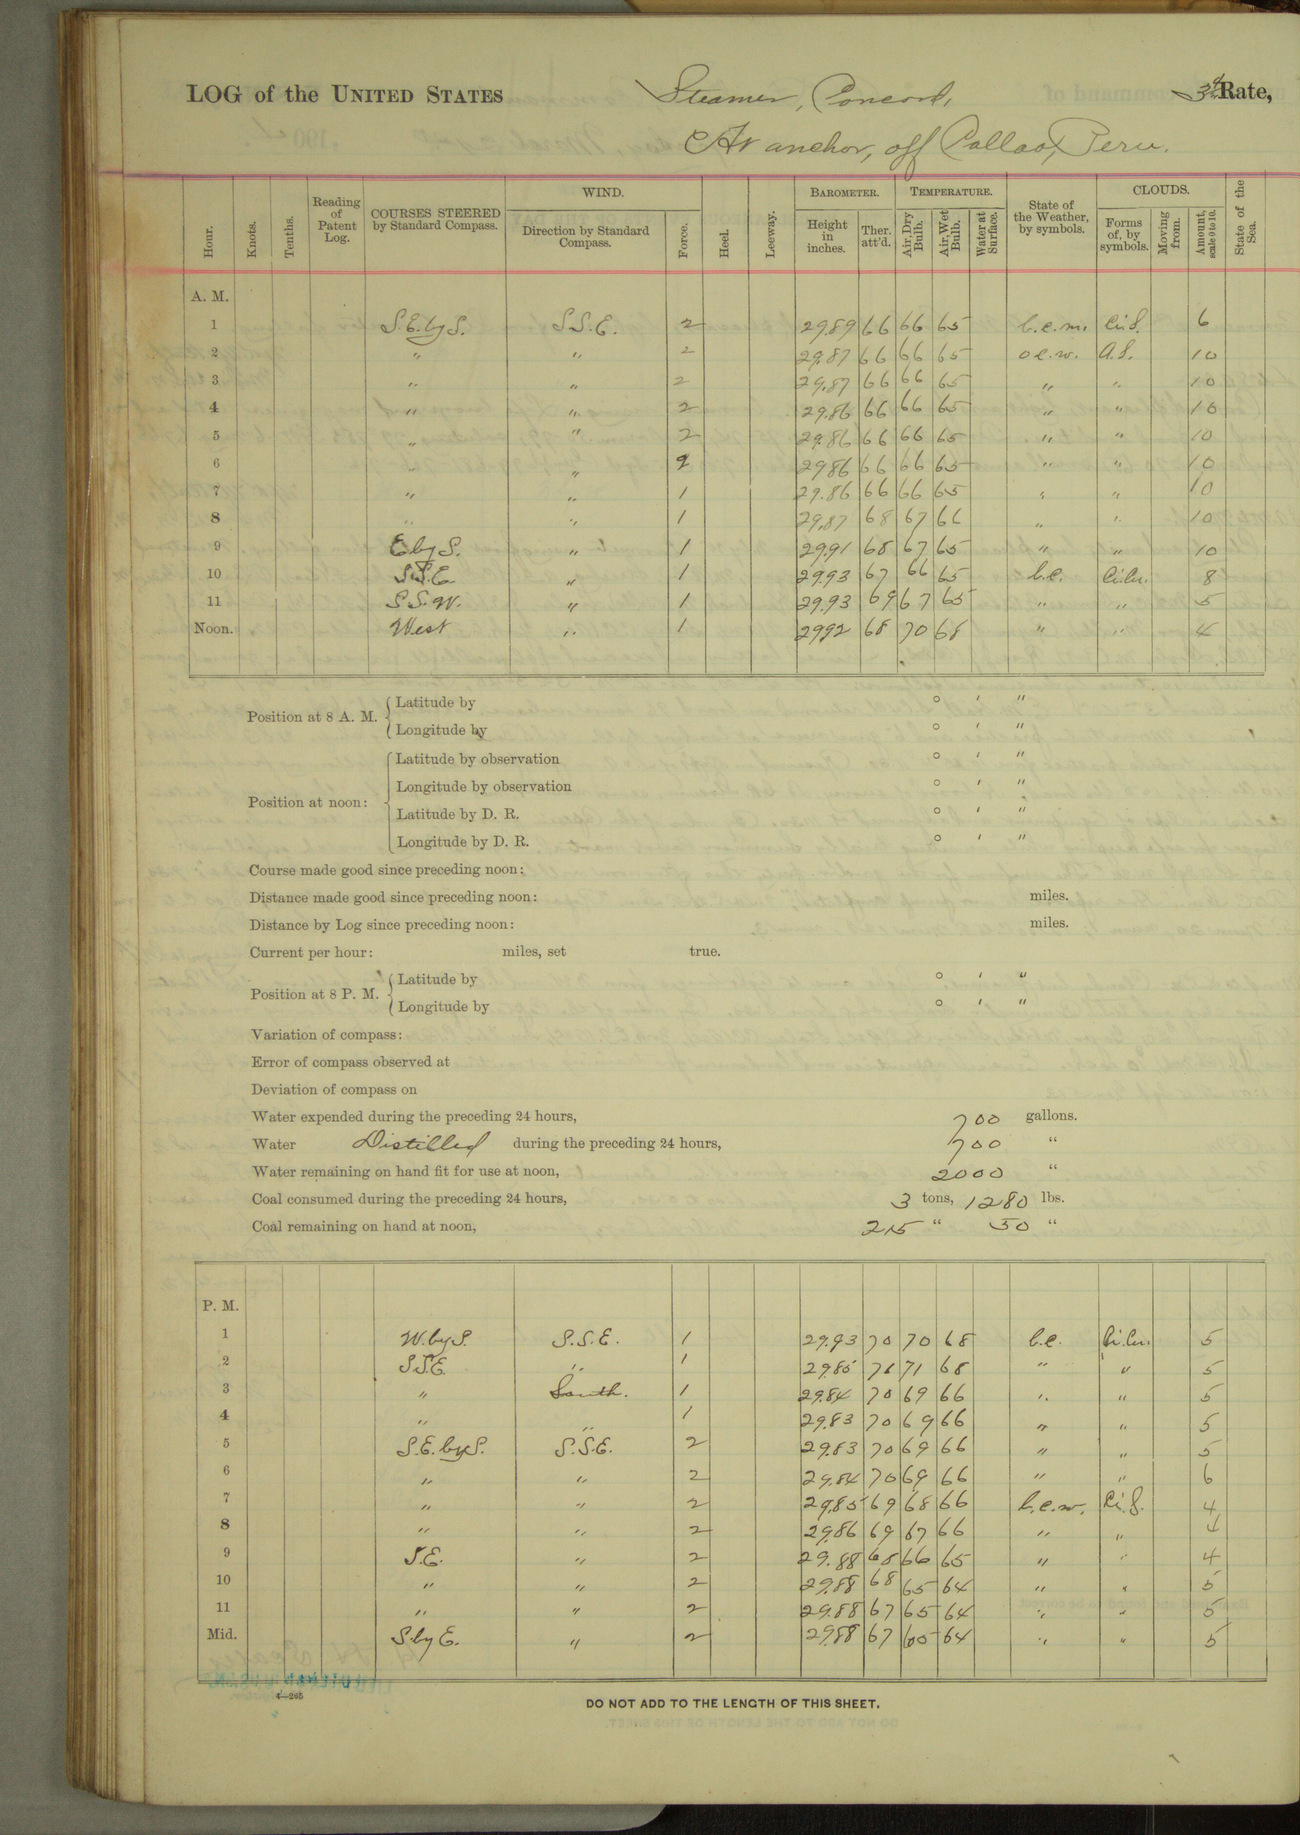 LOG of the UNITED STATES Steamer, Concord, 3d Rate,
At anchor, off Callao, Peru.
Hour. Knots. Tenths. Reading of Patent Log. COURSES STEERED by Standard Compass. WIND. Direction by Standard Compass. Force. Heel. Leeway. BAROMETER. Height in inches. Ther. att'd. TEMPERATURE. Air, Dry Bulb. Air, Wet Bulb. Water at Surface. State of the Weather, by symbols. CLOUDS. Forms of, by symbols. Moving from. Amount, scale 0 to 10. State of the Sea.
A. M.
1 S.E. by S. S.S.E. 2 29.89 66 66 65 b.c.m. Ci.S. 6
2 " " 2 29.87 66 66 65 o.c.w. A.S. 10
3 " " 2 29.87 66 66 65 " " 10
4 " " 2 29.86 66 66 65 " " 10
5 " " 2 29.86 66 66 65 " " 10
6 " " 2 29.86 66 66 65 " " 10
7 " " 1 29.86 66 66 65 " " 10
8 " " 1 29.87 68 67 66 " " 10
9 E by S. " 1 29.91 68 67 65 " " 10
10 S.S.E. " 1 29.93 67 66 65 b.c. Ci.Cu. 8
11 S.S.W. " 1 29.93 69 67 65 " " 5
Noon. West " 1 2992 68 70 68 " " 4
Position at 8 A. M. Latitude by ° ' "
Longitude by ° ' "
Position at noon: Latitude by observation ° ' "
Longitude by observation ° ' "
Latitude by D. R. ° ' "
Longitude by D. R. ° ' "
Course made good since preceding noon:
Distance made good since preceding noon: miles.
Distance by Log since preceding noon: miles.
Current per hour: miles, set true.
Position at 8 P. M. Latitude by ° ' "
Longitude by ° ' "
Variation of compass:
Error of compass observed at
Deviation of compass on
Water expended during the preceding 24 hours, 700 gallons.
Water Distilled during the preceding 24 hours, 700 "
Water remaining on hand fit for use at noon, 2000 "
Coal consumed during the preceding 24 hours, 3 tons, 1280 lbs.
Coal remaining on hand at noon, 215 " 50 "
P. M.
1 W. by S. S.S.E. 1 29.93 70 70 68 b.c. Ci.Cu. 5
2 S.S.E. " 1 29.85 71 71 68 " " 5
3 " South. 1 29.84 70 69 66 " " 5
4 " " 1 29.83 70 69 66 " " 5
5 S.E. by S. S.S.E. 2 29.83 70 69 66 " " 5
6 " " 2 29.84 70 69 66 " " 6
7 " " 2 29.85 69 68 66 b.c.w. Ci.S. 4
8 " " 2 29.86 69 67 66 " " 4
9 S.E. " 2 29.88 68 66 65 " " 4
10 " " 2 29.88 68 65 64 " " 5
11 " " 2 29.88 67 65 64 " " 5
Mid. S. by E. " 2 29.88 67 65 64 " " 5
4—265
DO NOT ADD TO THE LENGTH OF THIS SHEET.